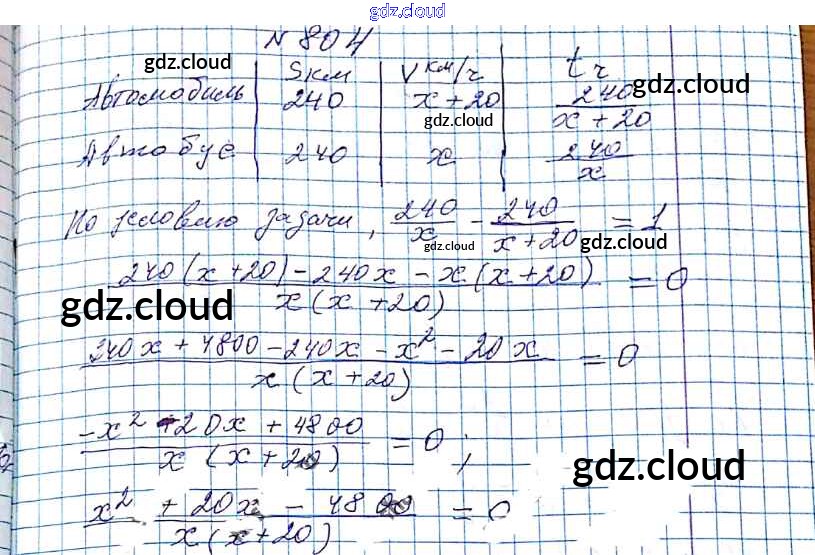 gdz.cloud
N 804
gdz.cloud
S км V км/ч t ч
gdz.cloud
Автомобиль 240 x + 20 240/(x + 20)
gdz.cloud
Автобус 240 x 240/x
По условию задачи, 240/x - 240/(x + 20) = 1
gdz.cloud gdz.cloud
(240(x + 20) - 240x - x(x + 20))/(x(x + 20)) = 0
gdz.cloud
(240x + 4800 - 240x - x² - 20x)/(x(x + 20)) = 0
(-x² - 20x + 4800)/(x(x + 20)) = 0;
gdz.cloud
(x² + 20x - 4800)/(x(x + 20)) = 0